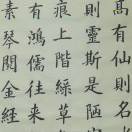 髙有仙則名
則靈斯是陋
痕上階緑草
有鴻儒往来
素琴閱金經